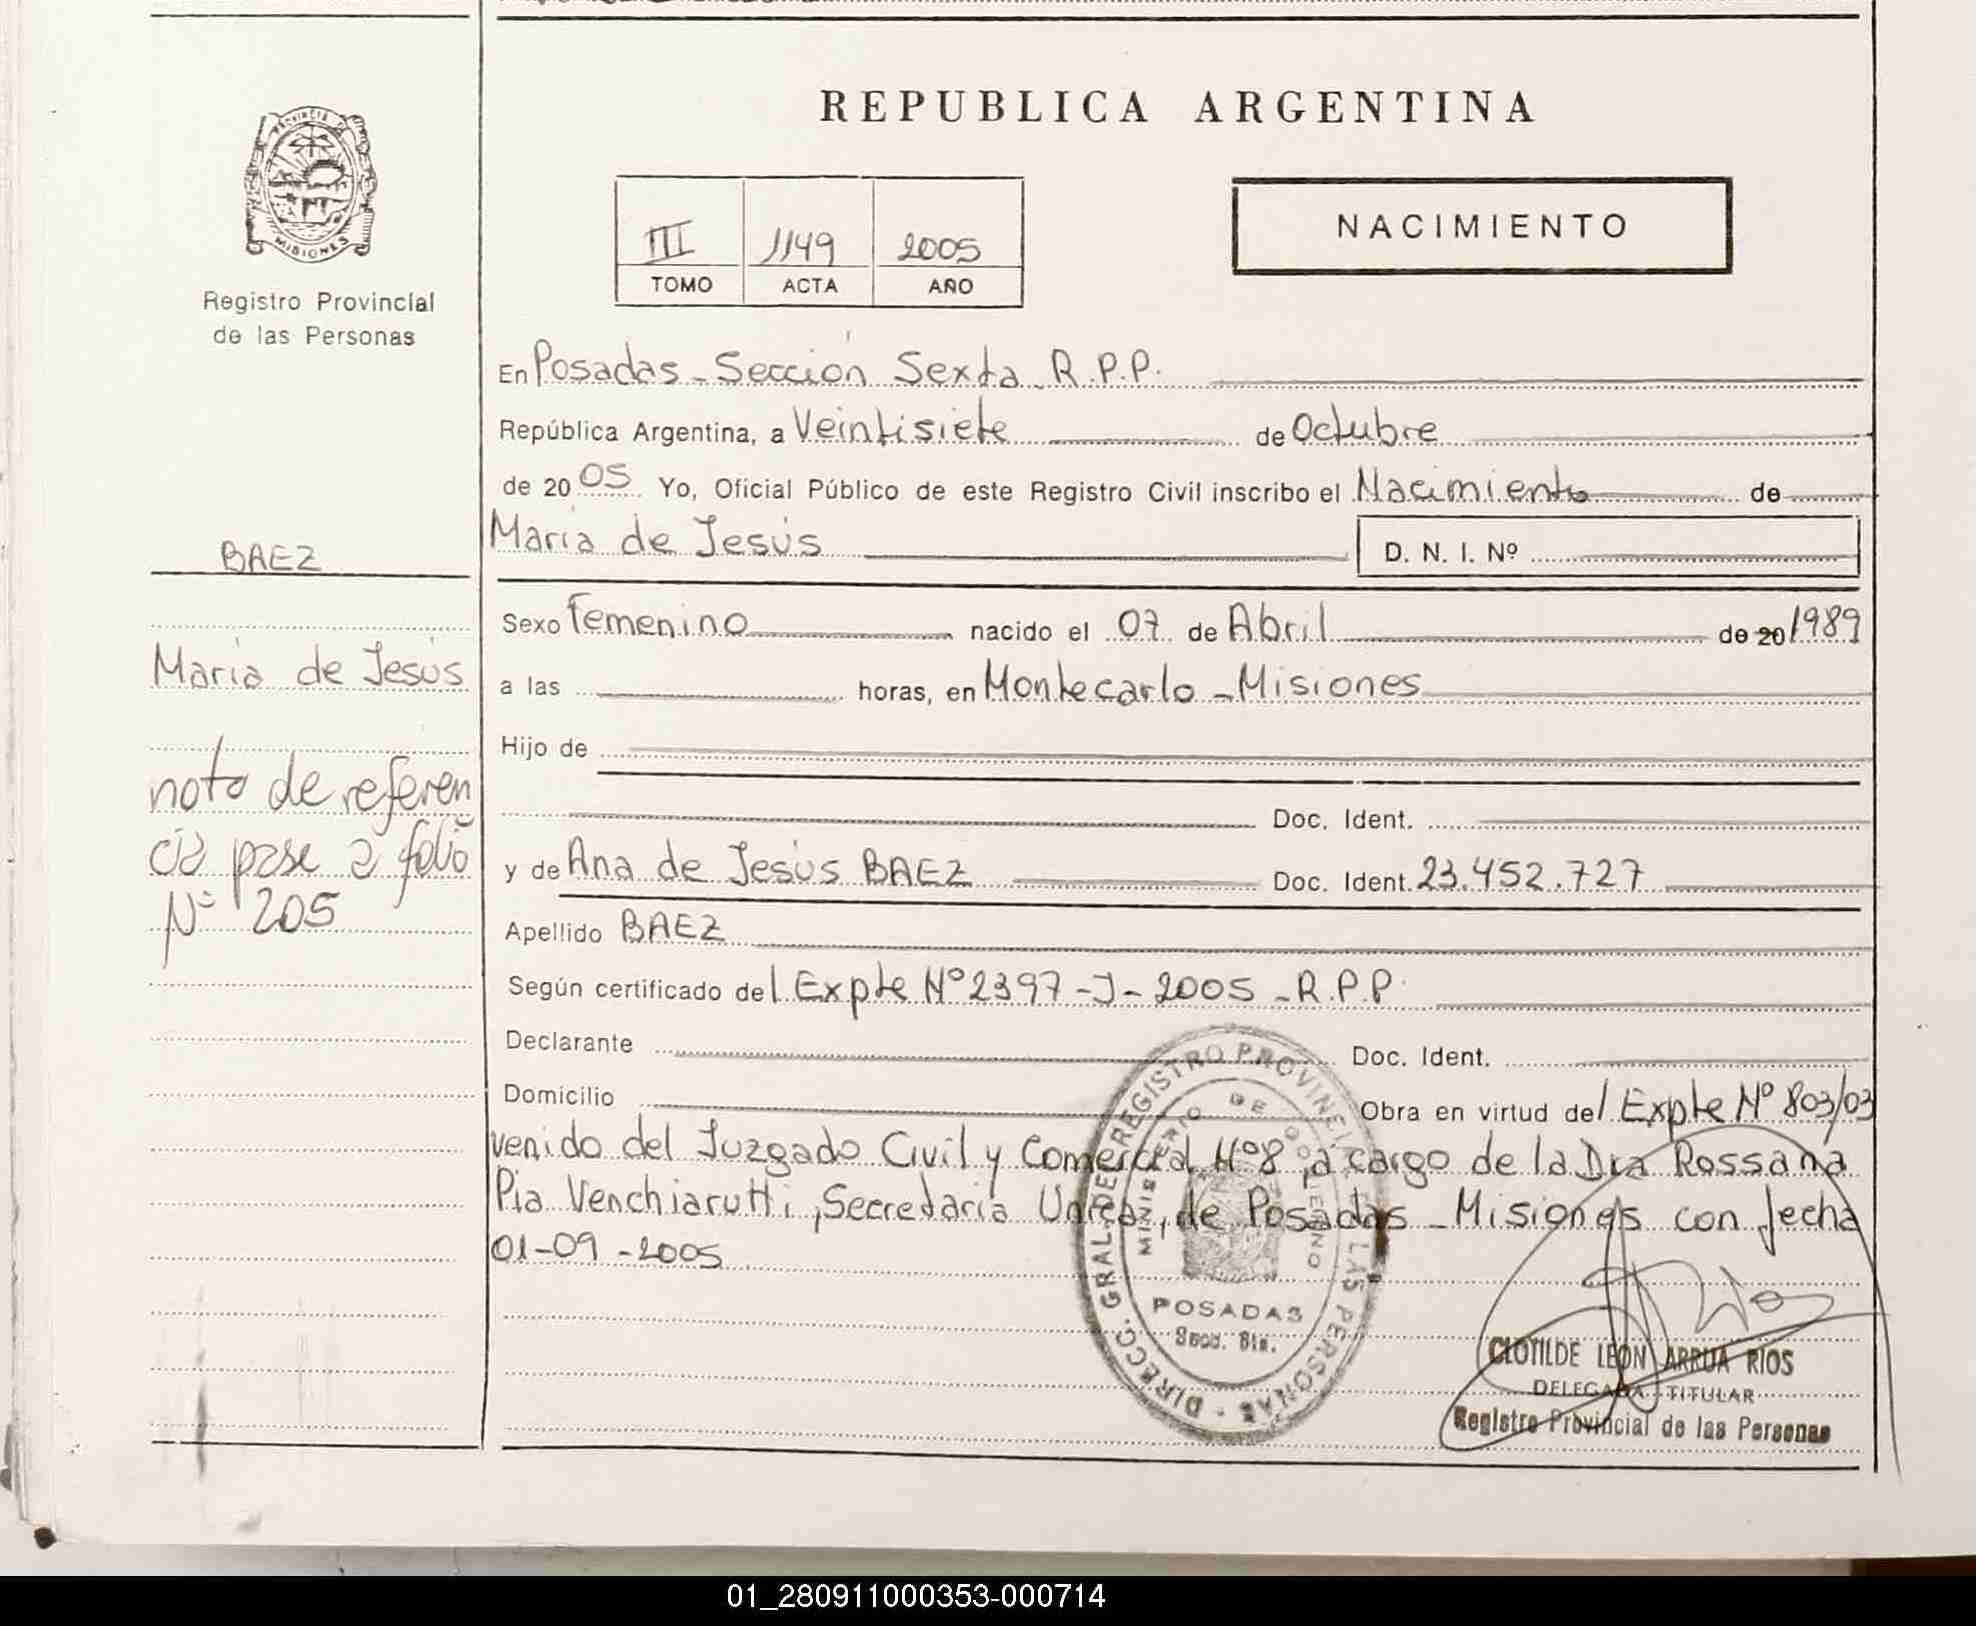 REPUBLICA ARGENTINA
PROVINCIA DE
MISIONES
Registro Provincial
de las Personas
III 1149 2005
TOMO ACTA AÑO
NACIMIENTO
En Posadas - Sección Sexta R.P.P.
República Argentina, a Veintisiete de Octubre
de 2005 Yo, Oficial Público de este Registro Civil inscribo el Nacimiento de
María de Jesús D. N. I. Nº
BAEZ
María de Jesús
nota de referen
cia pase a folio
Nº 205
Sexo Femenino nacido el 07 de Abril de 20 1989
a las horas, en Montecarlo - Misiones
Hijo de
Doc. Ident.
y de Ana de Jesús BAEZ Doc. Ident. 23.452.727
Apellido BAEZ
Según certificado del Expte Nº 2397-J-2005 - R.P.P.
Declarante Doc. Ident.
Domicilio Obra en virtud del Expte Nº 803/03
venido del Juzgado Civil y Comercial Nº8, a cargo de la Dra Rossana
Pia Venchiarutti, Secretaria Unica, de Posadas - Misiones con fecha
01-09-2005
DIRECC. GRAL. DE REGISTRO PROVINCIAL DE LAS PERSONAS
MINISTERIO DE GOBIERNO
POSADAS
Secc. 6ta.
CLOTILDE LEON ARRUA RIOS
DELEGADA TITULAR
Registro Provincial de las Personas
01_280911000353-000714